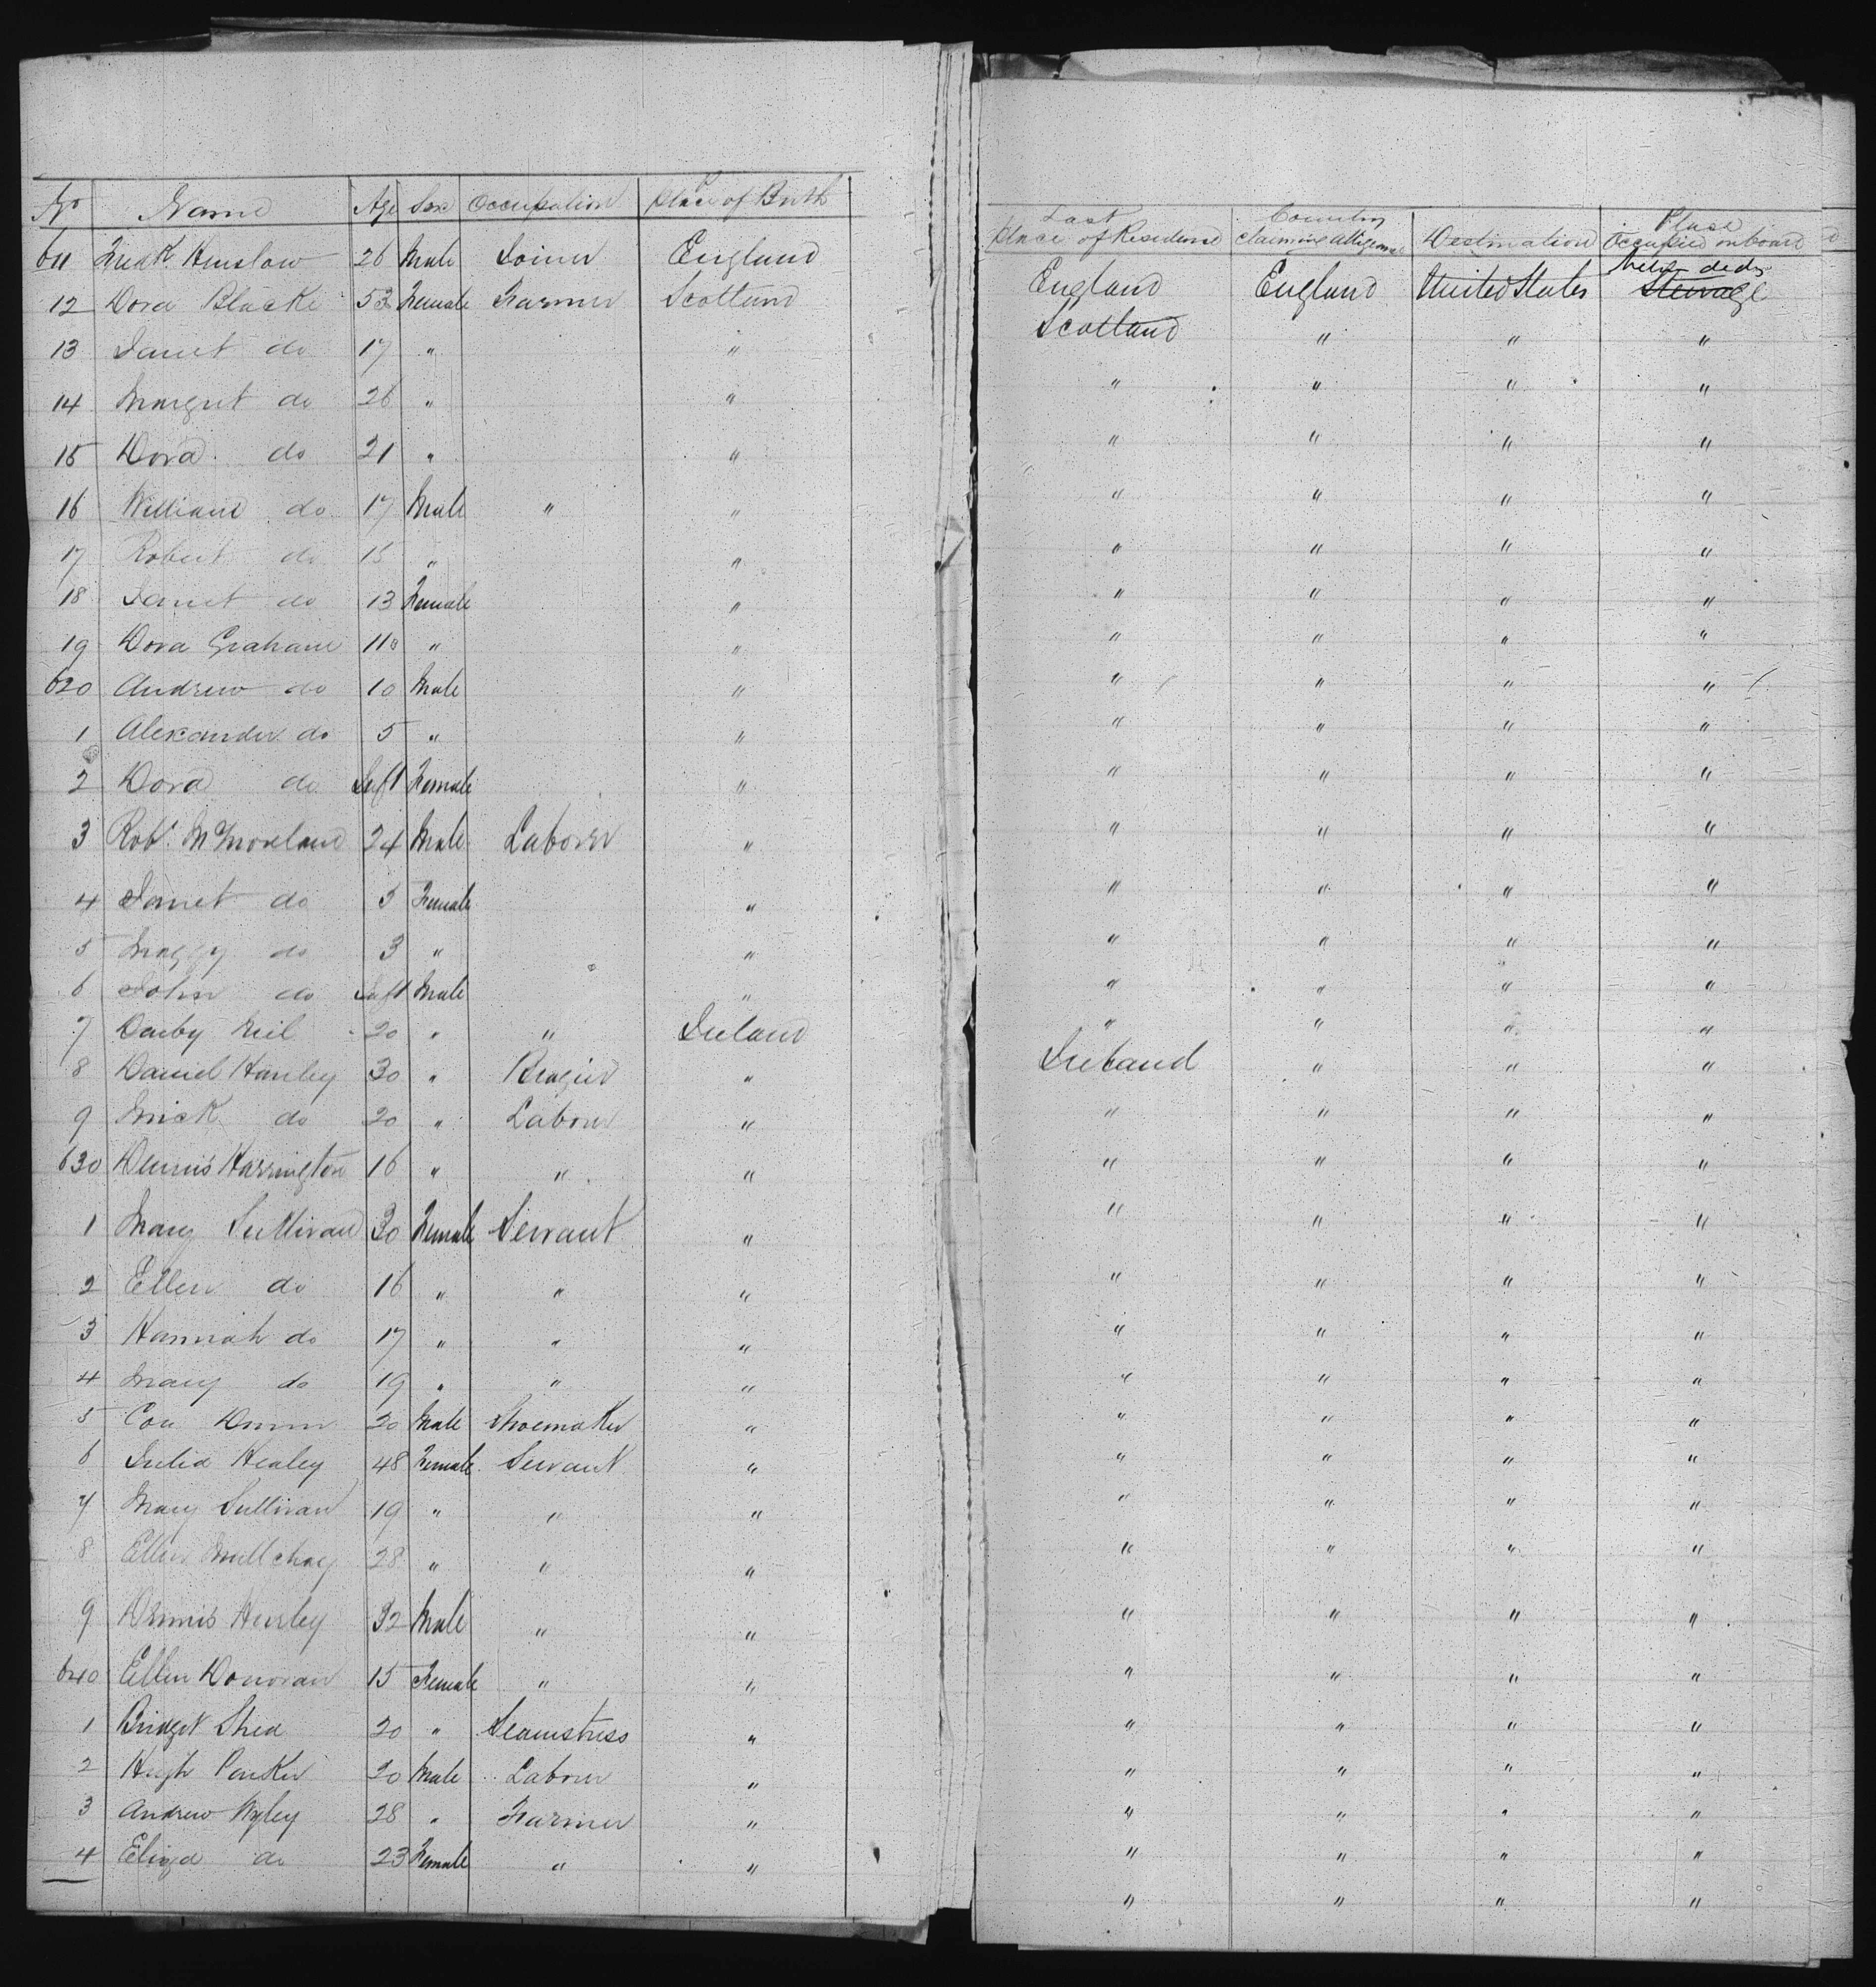 No Name Age Sex Occupation Place of Birth
611 Fredk. Henslow 26 Male Joiner England
12 Dora Blacke 52 Female Farmer Scotland
13 Janet do 17 " "
14 Margret do 26 " "
15 Dora do 21 " "
16 William do 17 Male " "
17 Robert do 15 " "
18 Janet do 13 Female "
19 Dora Graham 11 " "
620 Andrew do 10 Male "
1 Alexander do 5 " "
2 Dora do Inft Female "
3 Robt. McMoreland 24 Male Laborer "
4 Janet do 5 Female "
5 Maggy do 3 " "
6 John do Inft Male "
7 Darby Neil 20 " " Ireland
8 Daniel Hanley 30 " Brazier "
9 Mick do 20 " Labour "
630 Dennis Harrington 16 " " "
1 Mary Sullivan 30 Female Servant "
2 Ellen do 16 " " "
3 Hannah do 17 " " "
4 Mary do 19 " " "
5 Con Dunn 20 Male Shoemaker "
6 Julia Healey 48 Female Servant "
7 Mary Sullivan 19 " " "
8 Ellen 28 " " "
9 Dennis Hurley 32 Male " "
640 Ellen Donovan 15 Female " "
1 Bridget Shea 20 " Seamstress "
2 Hugh Parker 20 Male Labour "
3 Andrew Wyley 28 " Farmer "
4 Eliza do 23 Female " "
Last Place of Residence Country claiming allegiance Destination Place Occupied on board
England England United States Steerage
Scotland " " "
" " " "
" " " "
" " " "
" " " "
" " " "
" " " "
" " " "
" " " "
" " " "
" " " "
" " " "
" " " "
" " " "
" " " "
Ireland " " "
" " " "
" " " "
" " " "
" " " "
" " " "
" " " "
" " " "
" " " "
" " " "
" " " "
" " " "
" " " "
" " " "
" " " "
" " " "
" " " "
" " " "